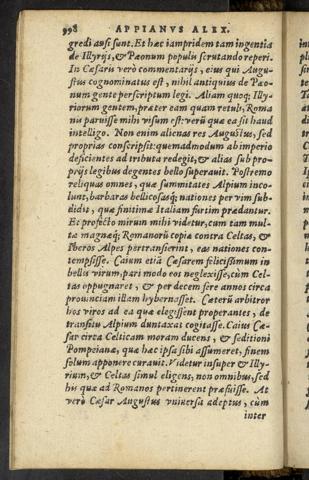 998 APPIANVS ALEX.
gredi ausi sunt. Et hæc iampridem tam ingentia
de Illyrijs, & Pæonum populis scrutando reperi.
In Cæsaris verò commentarijs, eius qui Augu-
stus cognominatus est, nihil antiquius de Pæo-
num gente perscriptum legi. Aliam quoq; Illy-
riorum gentem, præter eam quam retuli, Roma
nis paruisse mihi visum est: verũ quæ ea sit haud
intelligo. Non enim alienas res Augustus, sed
proprias conscripsit: quemadmodum ab imperio
deficientes ad tributa redegit, & alias sub pro-
prijs legibus degentes bello superauit. Postremo
reliquas omnes, quæ summitates Alpium inco-
lunt, barbaras bellicosasq; nationes per vim sub-
didit, quæ finitimæ Italiam furtim prædantur.
Et profecto mirum mihi videtur, cum tam mul-
ta magnæq; Romanorũ copiæ contra Celtas, &
Iberos Alpes pertransierint, eas nationes con-
tempsisse. Caium etiã Cæsarem felicissimum in
bellis virum, pari modo eos neglexisse, cùm Cel-
tas oppugnaret, & per decem fere annos circa
prouinciam illam hybernasset. Cæterũ arbitror
hos viros ad ea quæ elegissent properantes, de
transitu Alpium duntaxat cogitasse. Caius Cæ-
sar circa Celticam moram ducens, & seditioni
Pompeianæ, quæ hæc ipsa sibi assumeret, finem
solum apponere curauit. Videtur insuper & Illy-
rium, & Celtas simul eligens, non omnibus, sed
his quæ ad Romanos pertinerent præfuisse. At
verò Cæsar Augustus vniuersa adeptus, cùm
inter